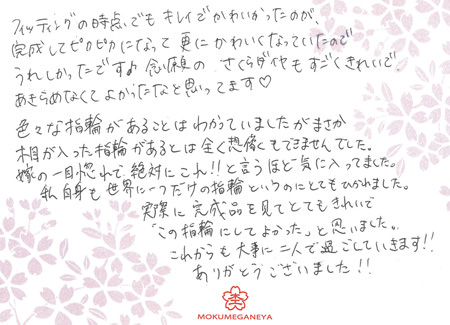 フィッティングの時点でもキレイでかわいかったのが、
完成してピカピカになって更にかわいくなっていたので
うれしかったです♪ 念願の さくらダイヤもすごくきれいで、
あきらめなくてよかったなと思ってます♡
色々な指輪があることはわかっていましたがまさか
木目が入った指輪があるとは全く想像もできませんでした。
嫁の一目惚れで、絶対にこれ!!と言うほど気に入ってました。
私自身も世界に一つだけの指輪というのにとてもひかれました。
実際に完成品を見てとてもきれいで
「この指輪にしてよかった。」と思いました。
これからも大事に二人で過ごしていきます!!
ありがとうございました!!
MOKUMEGANEYA